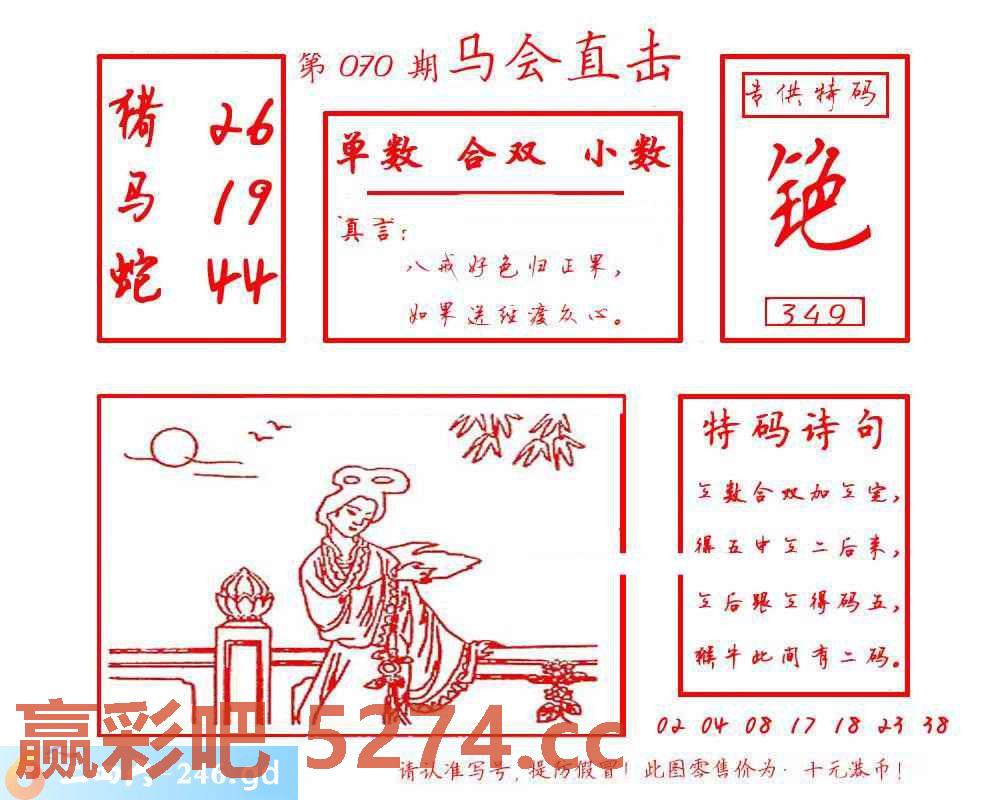 第 070 期 马会直击
猪 26
马 19
蛇 44
单数 合双 小数
真言:
八戒好色归正果,
如果送经渡众心。
专供特码
349
特码诗句
数合双加 定,
得五中 二后来,
后跟 得码五,
猴牛此间有二码。
02 04 08 17 18 23 38
赢彩吧 5274.cc
-246.gd
请认准写号,提防假冒!此图零售价为:十元港币!